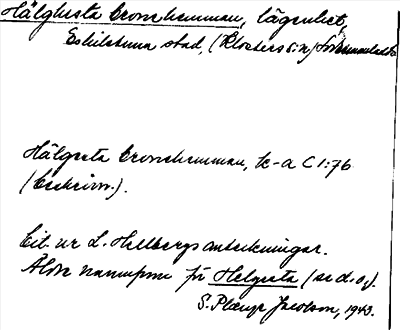 Hälghesta Cronohemman, lägenhet,
Eskilstuna stad, (Klosters sn) Södermanlands
Hälgesta Cronohemman, k-a C 1:76
(beskrivn.).
Cit. ur L. Hellbergs anteckningar.
Äldre namnform för Helgesta (se d. o.).
S. Plæng Jacobson, 1943.